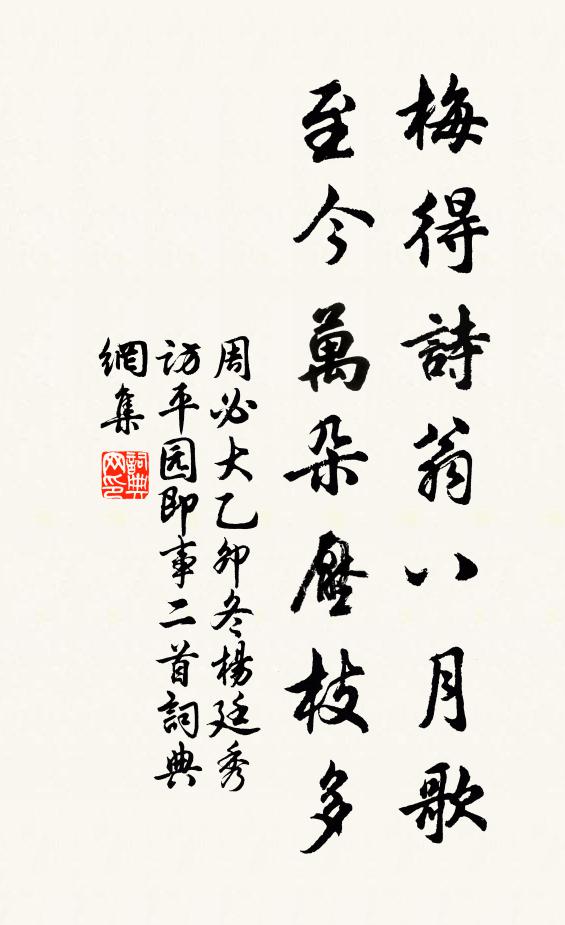 梅得詩翁八月歌
至今萬朵壓枝多
周必大乙卯冬楊廷秀
访平园即事二首詞典
網集
詞典网印